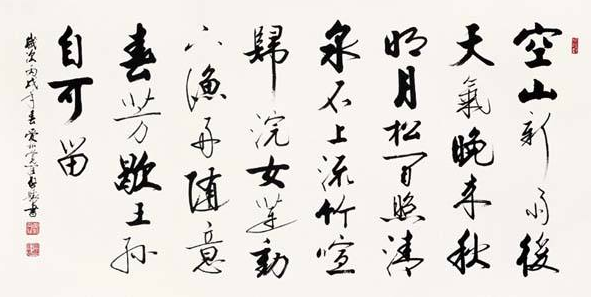 空山新雨後
天氣晚来秋
明月松間照清
泉石上流竹喧
歸浣女蓮動
下漁舟随意
春芳歇王孫
自可留
歲次丙戌年春